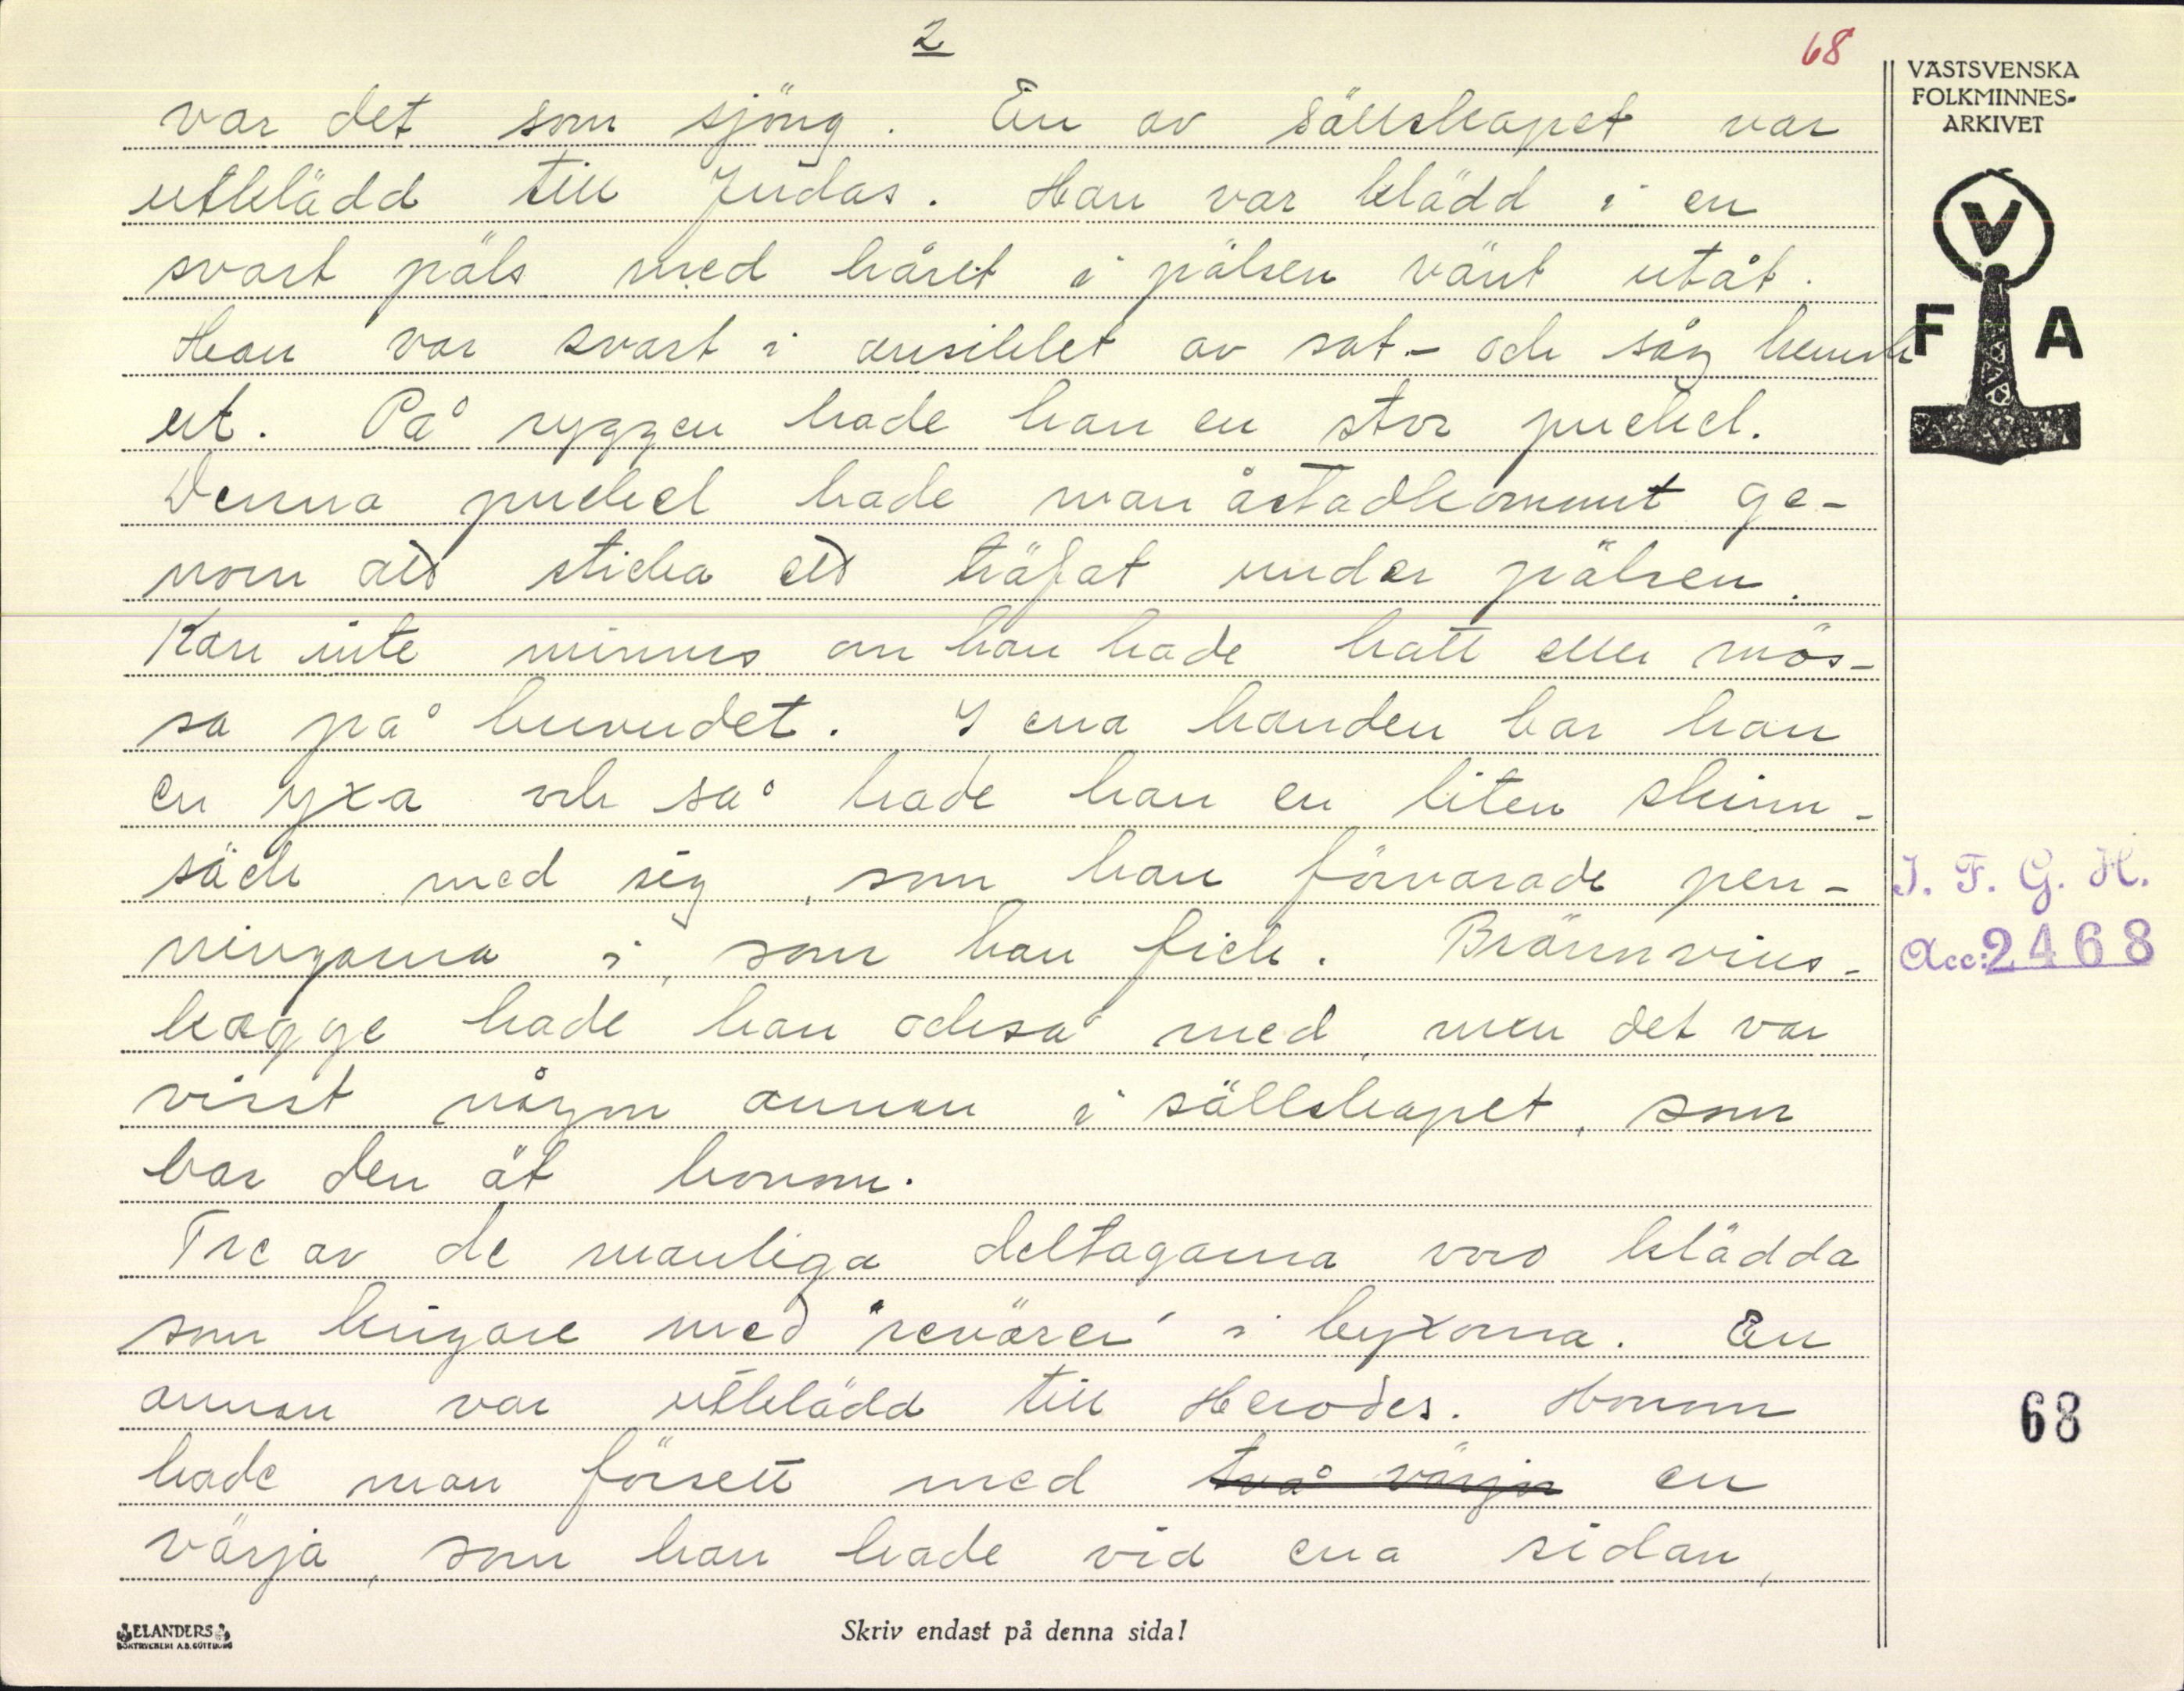 2
68
VÄSTSVENSKA
FOLKMINNES-
ARKIVET
V
F A
var det som sjöng. En av sällskapet var
utklädd till Judas. Han var klädd i en
svart päls med håret i pälsen vänt utåt.
Han var svart i ansiktet av sot - och såg hemsk
ut. På ryggen hade han en stor puckel.
Denna puckel hade man åstadkommit ge-
nom att sticka ett träfat under pälsen.
Kan inte minnas om han hade hatt eller mös-
sa på huvudet. I ena handen bar han
en yxa och så hade han en liten skinn-
säck med sig, som han förvarade pen-
ningarna i, som han fick. Brännvins-
kagge hade han också med, men det var
visst någon annan i sällskapet, som
bar den åt honom.
Tre av de manliga deltagarna voro klädda
som krigare med "revärer" i byxorna. En
annan var utklädd till Herodes. Honom
hade man försett med två värjor en
värja, som han hade vid ena sidan,
I. F. G. H.
Acc: 2468
68
ELANDERS
BOKTRYCKERI A.B. GÖTEBORG
Skriv endast på denna sida!